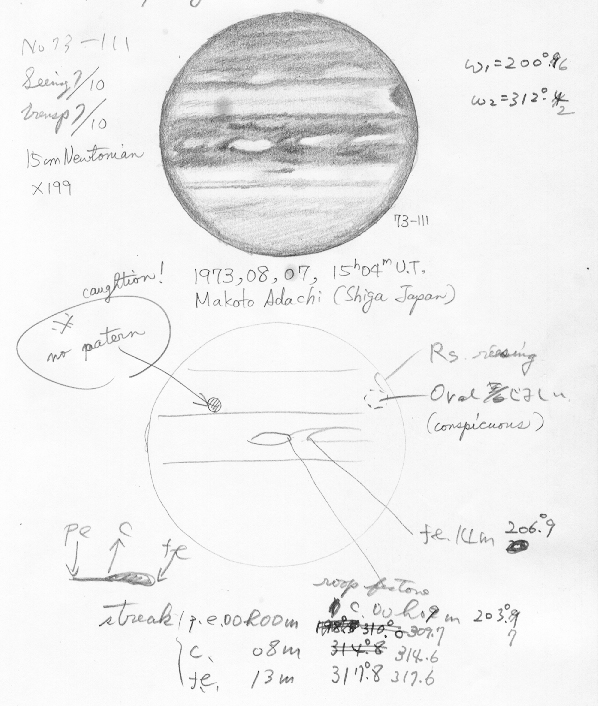 No 73-111
Seeing 7/10
transp 7/10
15cm Newtonian
×199
ω1=200°.96
ω2=312°.2
73-111
1973,08,07, 15h04m U.T.
Makoto Adachi (Shiga Japan)
caughtion!
no patern
Rs.
Oval
(conspicuous)
fe. 206°.9
pe C fe
roop festone
streak p.e. 00h00m C. 00h m 203°.9
309.7 7
C. 08m 314.8 314.6
fe. 13m 317°.8 317.6